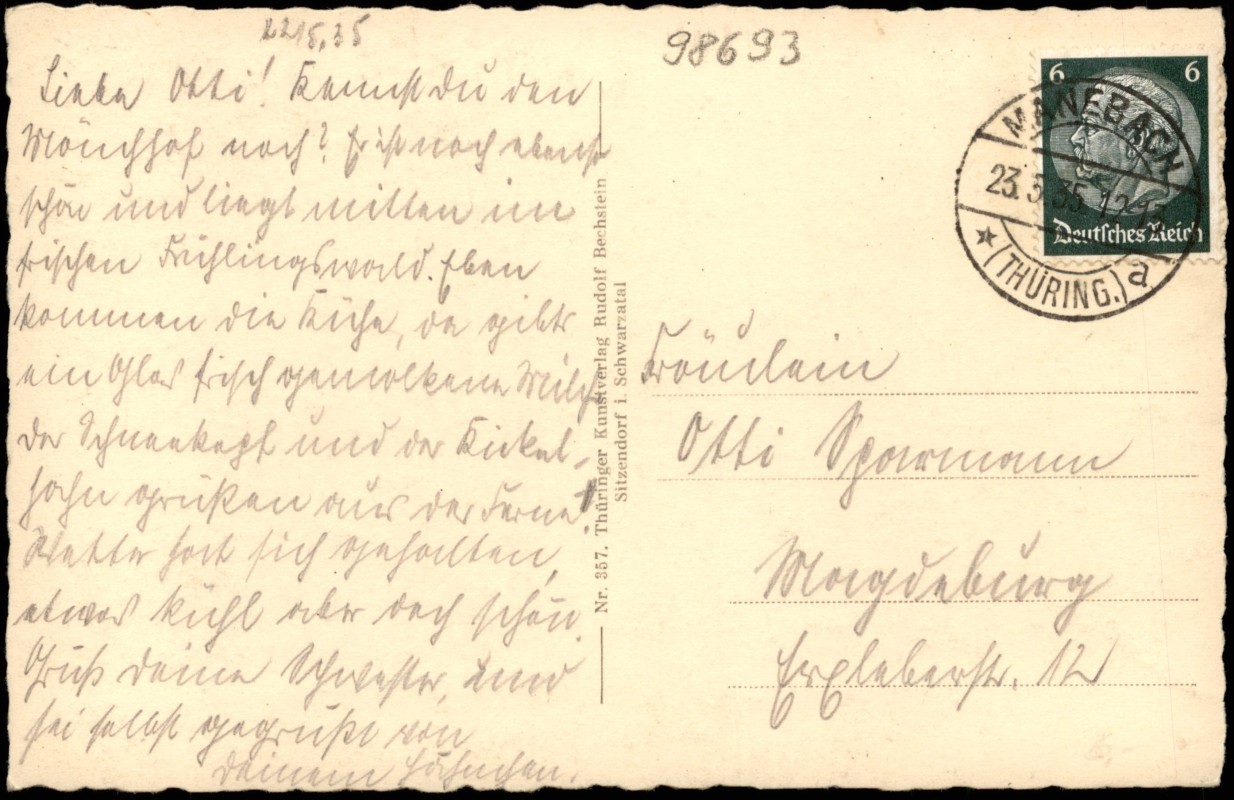 22.5.35
Liebe Otti! Kennst du den
Mönchhof noch? Er ist noch ebenso
schön und liegt mitten im
frischen Frühlingswald. Eben
kommen die Kühe, da gibts
ein Glas frisch gemolkene Milch
Der Schneekopf und der Kickel-
hahn grüßen aus der Ferne!
Wetter hat sich gehalten,
etwas kühl aber doch schön.
Gruß deine Schwester, und
sei selbst gegrüßt von
deinem Hähnchen.
Nr. 357. Thüringer Kunstverlag Rudolf Bechstein
Sitzendorf i. Schwarzatal
98693
6 6
Deutsches Reich
MANEBACH
23.5.35 12-13
★ (THÜRING.) a
Fräulein
Otti Sparmann
Magdeburg
Erxleberstr. 12